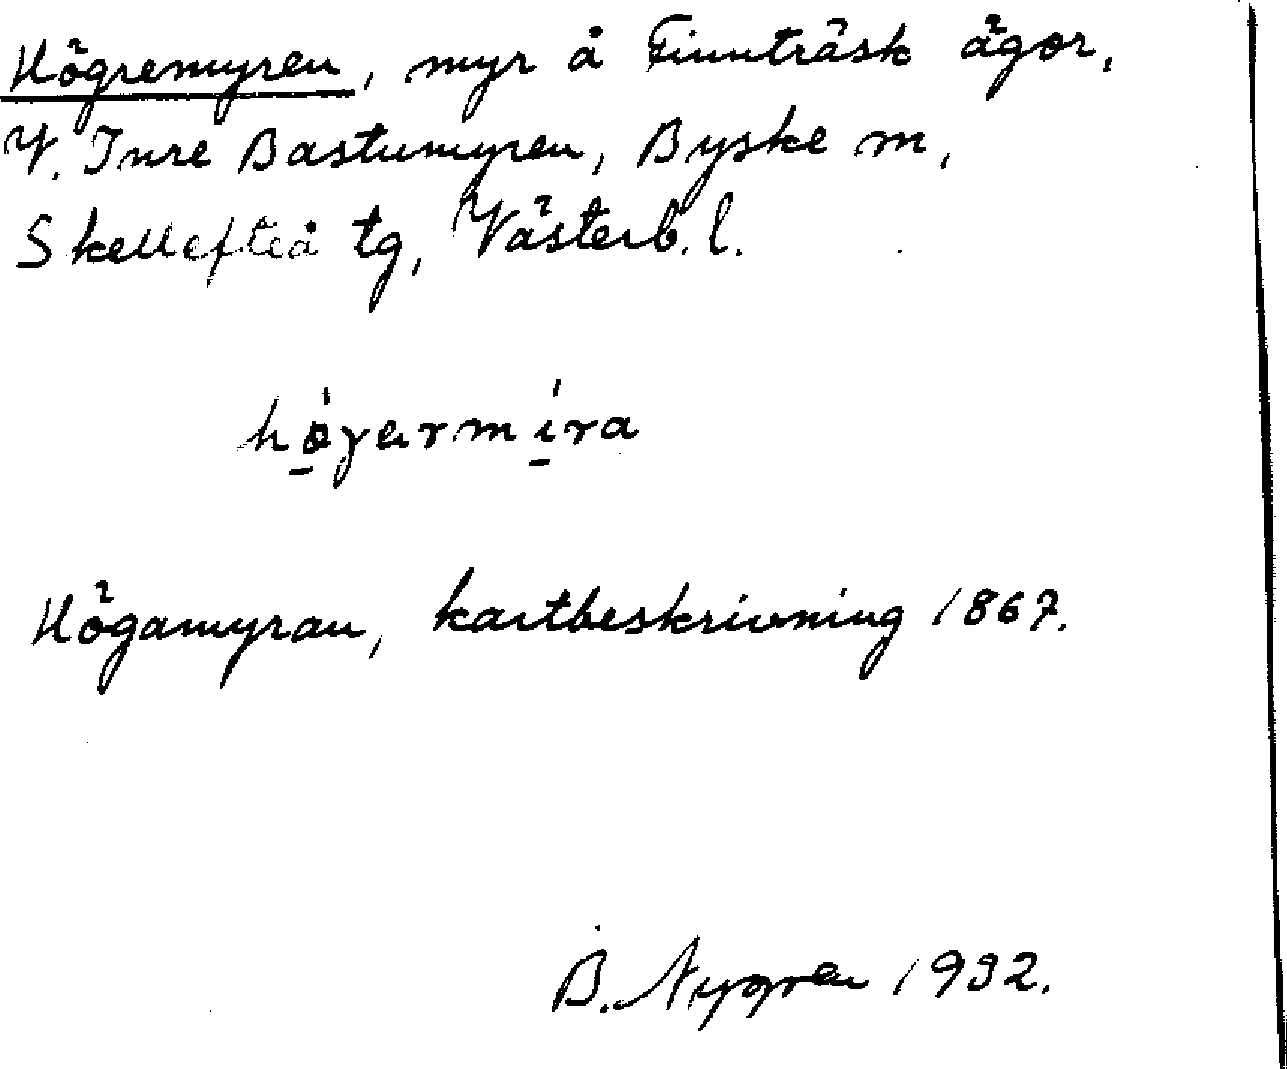 Högremyren, myr å Finnträsk ägor,
V. Inre Bastumyren, Byske m,
Skellefteå tg, Västerb. l.
hǿ̱garmí̱ra
Högamyran, kartbeskrivning 1867.
B. Nygren 1932.